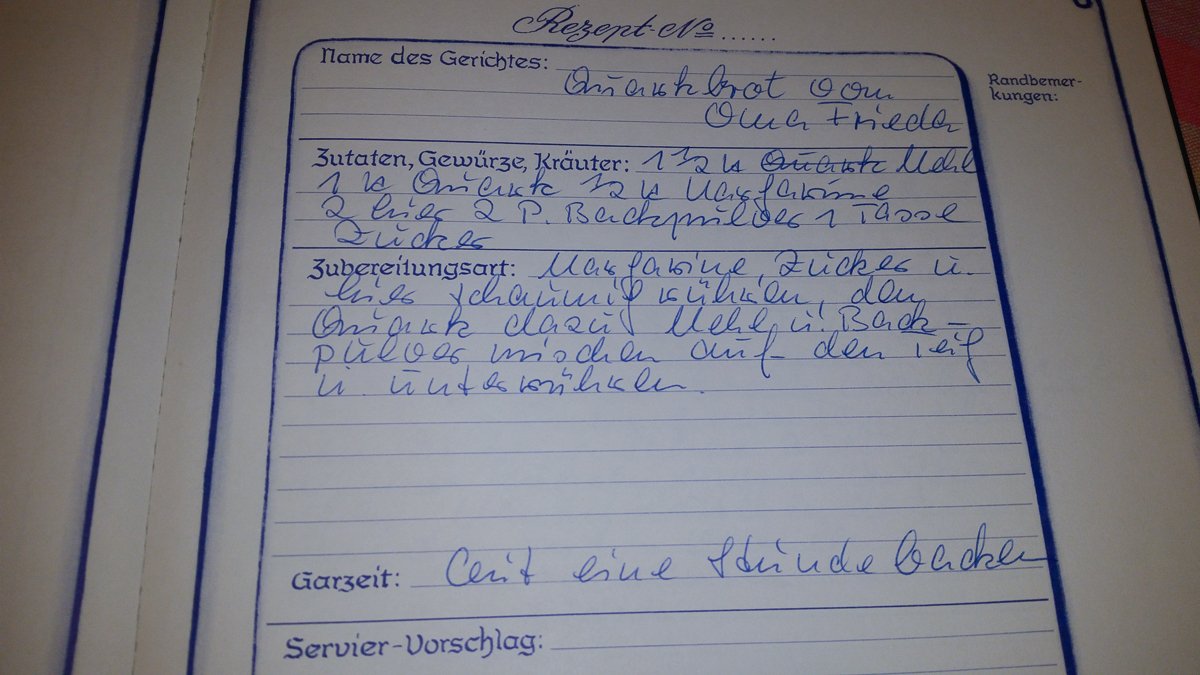 Rezept-No ......
Name des Gerichtes:
Randbemer-
kungen:
Quarkbrot vom
Oma Frieda
Zutaten, Gewürze, Kräuter: 1 1/2 K Quark Mehl
1 K Quark 1/2 K Margarine
2 Eier 2 P. Backpulver 1 Tasse
Zucker
Zubereitungsart: Margarine, Zucker u.
Eier schaumig rühren, den
Quark dazu! Mehl u. Back-
pulver mischen auf den Teig
u. unterrühren.
Garzeit: eine Stunde backen
Servier-Vorschlag: